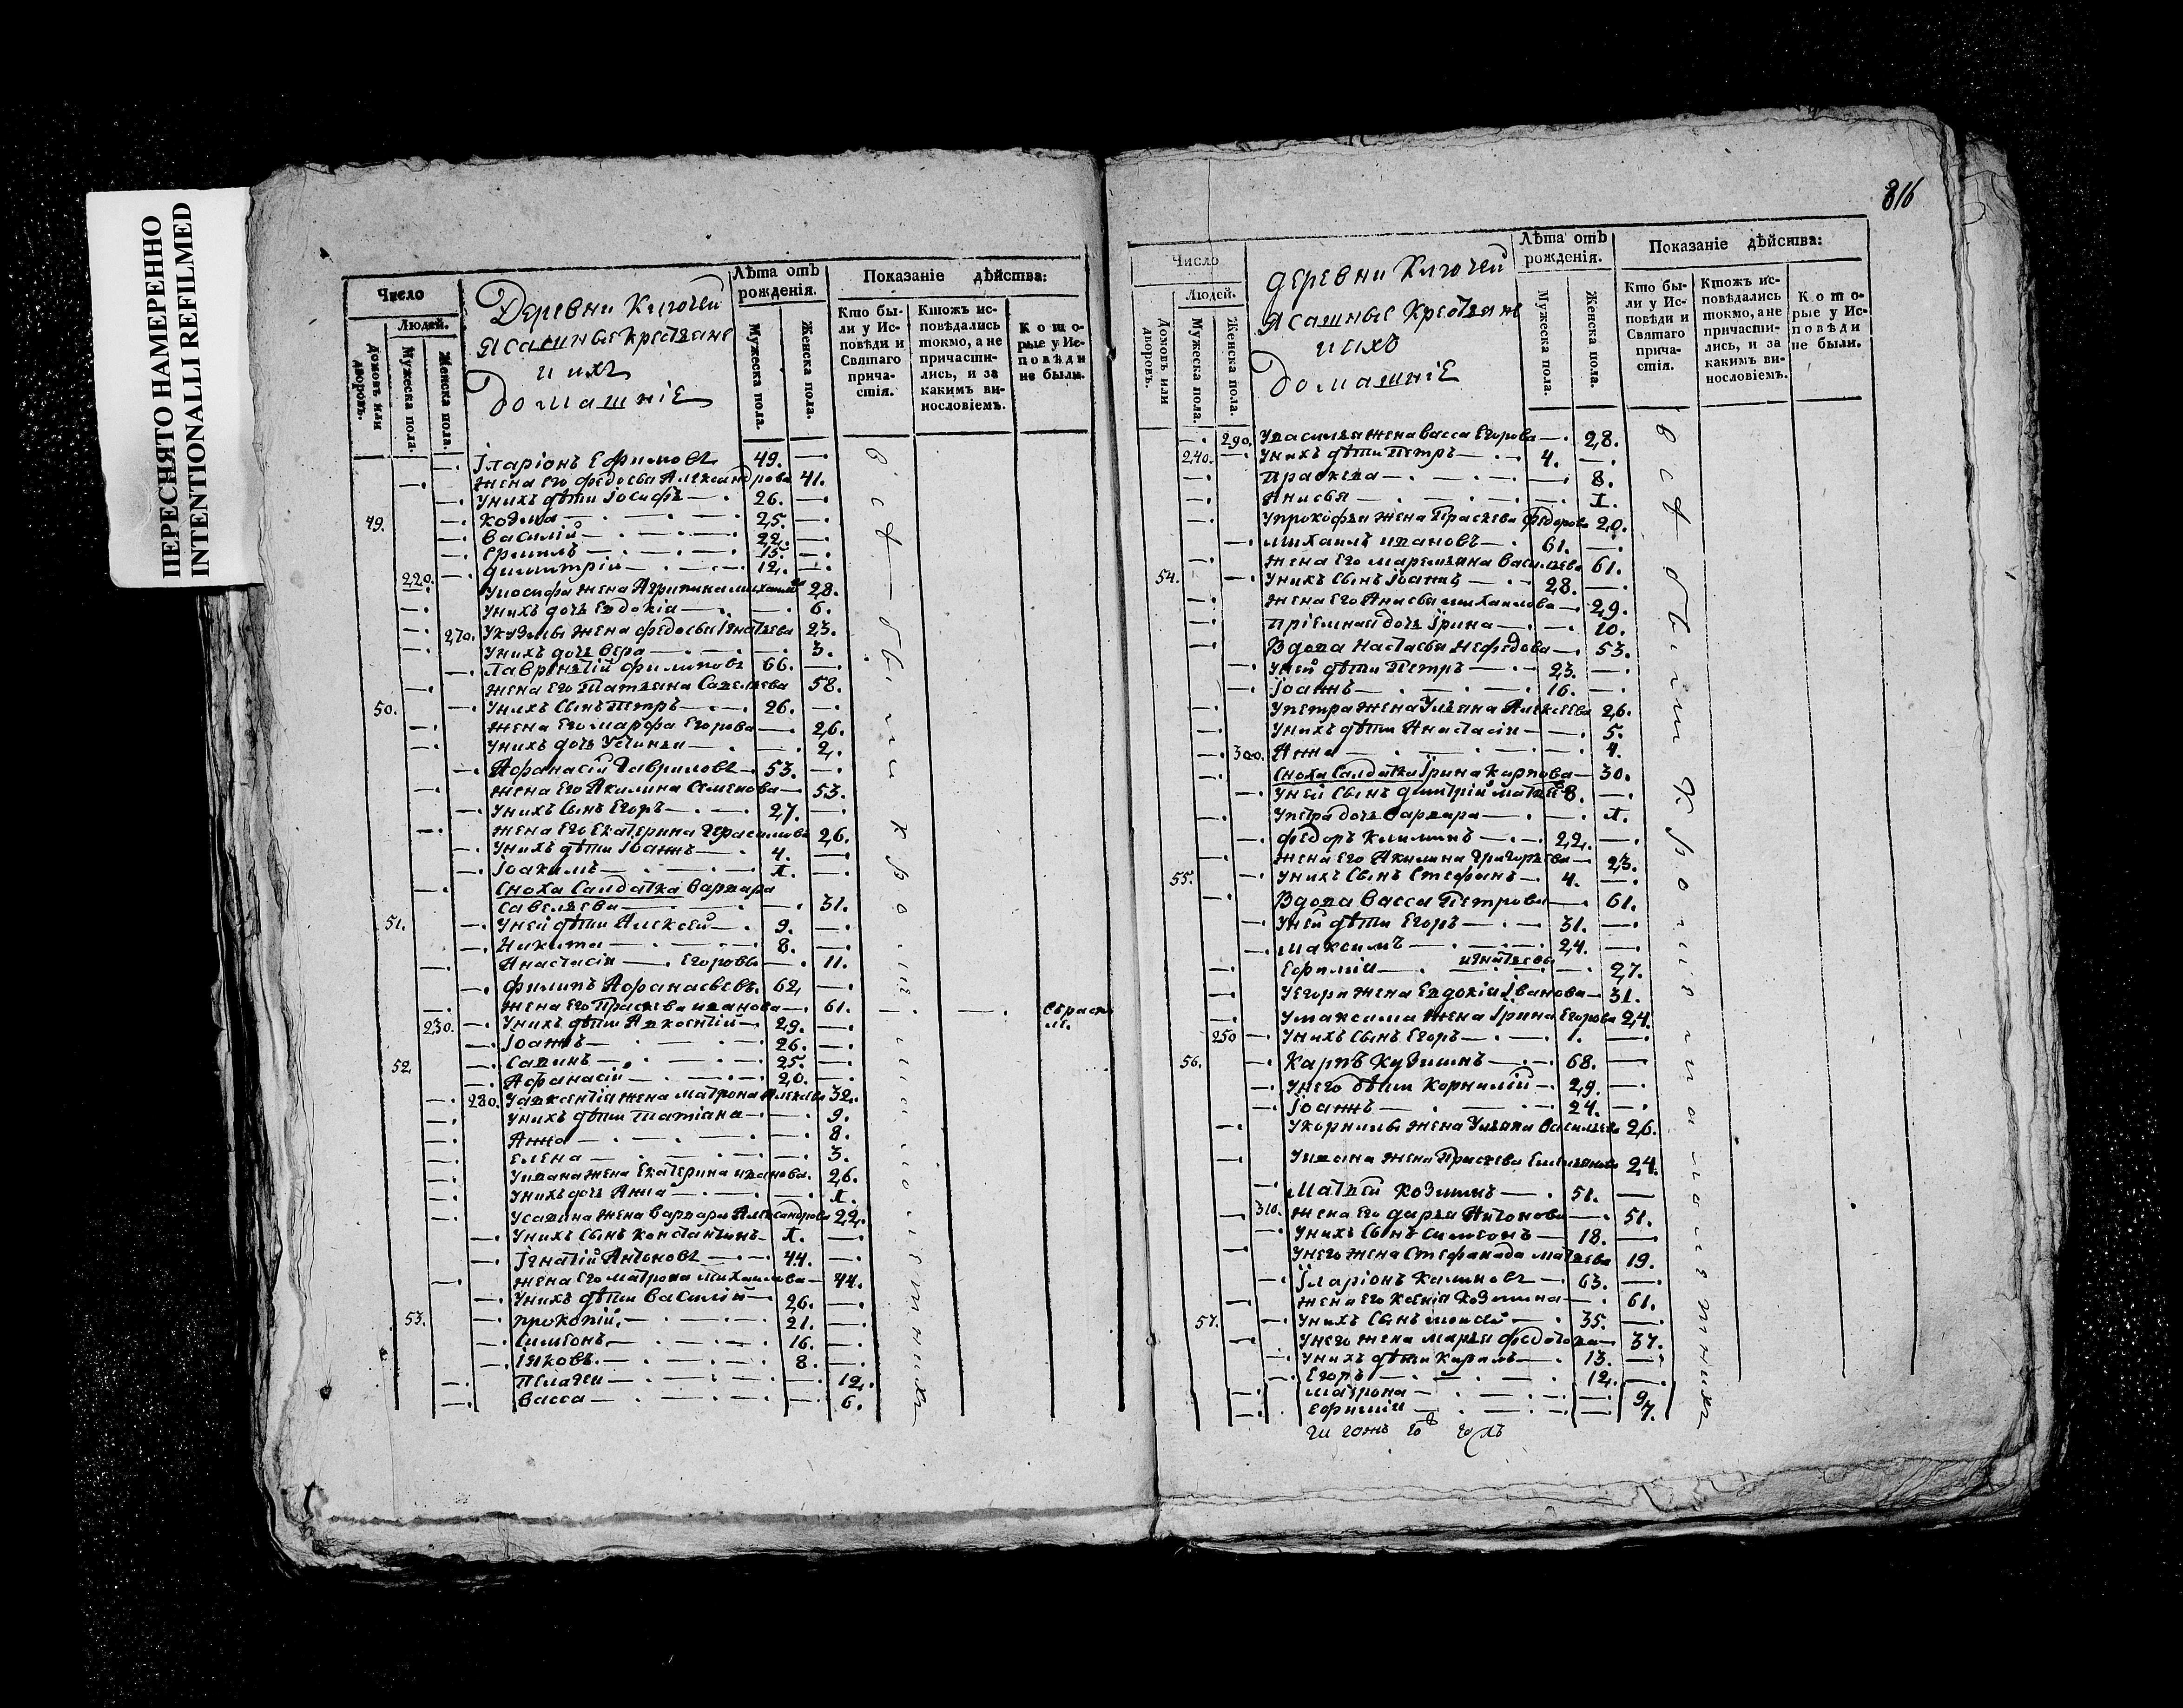 ПЕРЕСНЯТО НАМЕРЕННО
INTENTIONALLI REFILMED
Число
Людей.
Домовъ или дворовъ.
Мужеска пола.
Женска пола.
Деревни Ключей
Ясашные крестьяне
и ихъ
домашніе
Лѣта отъ рожденія.
Мужеска пола.
Женска пола.
Показаніе дѣйства:
Кто бы-
ли у Ис-
повѣди и
Святаго
прича-
стія.
Ктожъ ис-
повѣдались
токмо, а не
причасти-
лись, и за
какимъ ви-
нословіемъ.
К о т о-
рые у Ис-
п о в ѣ д и
не были.
Іларіонъ Ефимовъ 49.
жена его Федосья Александрова 41.
у нихъ дѣти Іосифъ 26.
49. Козма 25.
Василій 22.
Ермилъ 15.
Димитрій 12.
220. У Иосифа жена Агрипина Михаилова 28.
у нихъ дочь Евдокіа 6.
270. У Кузмы жена Федосья Игнатьева 23.
у нихъ дочь Вѣра 3.
Лаврентій Филиповъ 66.
жена его Татьяна Савельева 58.
50. у нихъ сынъ Петръ 26.
жена его Марфа Егорова 26.
у нихъ дочь Устинья 2.
Афанасій Гавриловъ 53.
жена его Акилина Семенова 53.
у нихъ сынъ Егоръ 27.
жена его Екатерина Герасимова 26.
у нихъ дѣти Іоаннъ 4.
Іоакимъ 1.
сноха салдатка Варвара
Савельева 31.
51. у ней дѣти Алексей 9.
Никита 8.
Анастасія Егоровы 11.
Филипъ Афанасьевъ 62
жена его Прасковья Иванова 61.
230. у нихъ дѣти Авксентій 29.
Іоаннъ 26.
52. Савинъ 25.
Афанасій 20.
280. У Авксентія жена Матрона Алексеева 32.
у нихъ дѣти Татіана 9.
Анна 8.
Елена 3.
У Ивана жена Екатерина Иванова 26.
у нихъ дочь Анна 1.
У Савина жена Варвара Александрова 22.
у нихъ сынъ Константинъ 1.
Ігнатій Антоновъ 44.
жена его Матрона Михаилова 44.
у нихъ дѣти Василій 26.
53. Прокопій 21.
Симеонъ 16.
Іяковъ 8.
Пелагея 12.
Васса 6.
816
Число
Людей.
Домовъ или дворовъ.
Мужеска пола.
Женска пола.
деревни Ключей
Ясашные крестьяне
и ихъ
домашніе
Лѣта отъ рожденія.
Мужеска пола.
Женска пола.
Показаніе дѣйства:
Кто бы-
ли у Ис-
повѣди и
Святаго
прича-
стія.
Ктожъ ис-
повѣдались
токмо, а не
причасти-
лись, и за
какимъ ви-
нословіемъ.
К о т о-
рые у Ис-
п о в ѣ д и
не были.
290. У Василья жена Васса Егорова 28.
240. у нихъ дѣти Петръ 4.
Праскева 8.
Анисья 1.
У Прокофья жена Праскева Федорова 20.
Михаилъ Ивановъ 61.
жена его Маремьяна Васильева 61.
54. у нихъ сынъ Іоаннъ 28.
жена его Анисья Михаилова 29.
пріемная дочь Ірина 10.
Вдова Настасья Мефодова 53.
у ней дѣти Петръ 23.
Іоаннъ 16.
У Петра жена Ульяна Алексеева 26.
у нихъ дѣти Анастасія 5.
300. Анна 4.
сноха салдатка Ірина Карпова 30.
у ней сынъ Димитрій Матвеевъ 8.
У Петра дочь Варвара 1.
Федоръ Климинъ 22.
жена его Акилина Григорьева 23.
55. у нихъ сынъ Стефанъ 4.
Вдова Васса Петрова 61.
у ней дѣти Егоръ 31.
Максимъ 24.
Ефимія Игнатьевы 27.
У Егора жена Евдокія Іванова 31.
У Максима жена Ірина Егорова 24.
250 у нихъ сынъ Егоръ 1.
56. Карпъ Кузминъ 68.
у него дѣти Корнилій 29.
Іоаннъ 24.
У Корнилы жена Ульяна Васильева 26.
У Ивана жена Праскева Емельянова 24.
Матвей Козминъ 51.
310. жена его Дарья Антонова 51.
у нихъ сынъ Симеонъ 18.
у него жена Стефанида Матвеева 19.
Іларіонъ Калиновъ 63.
жена его Ксенія Козмина 61.
57. у нихъ сынъ Моисей 35.
у него жена Марья Федотова 37.
у нихъ дѣти Кирилъ 13.
Егоръ 12.
Матрона 9
Ефимія 7.